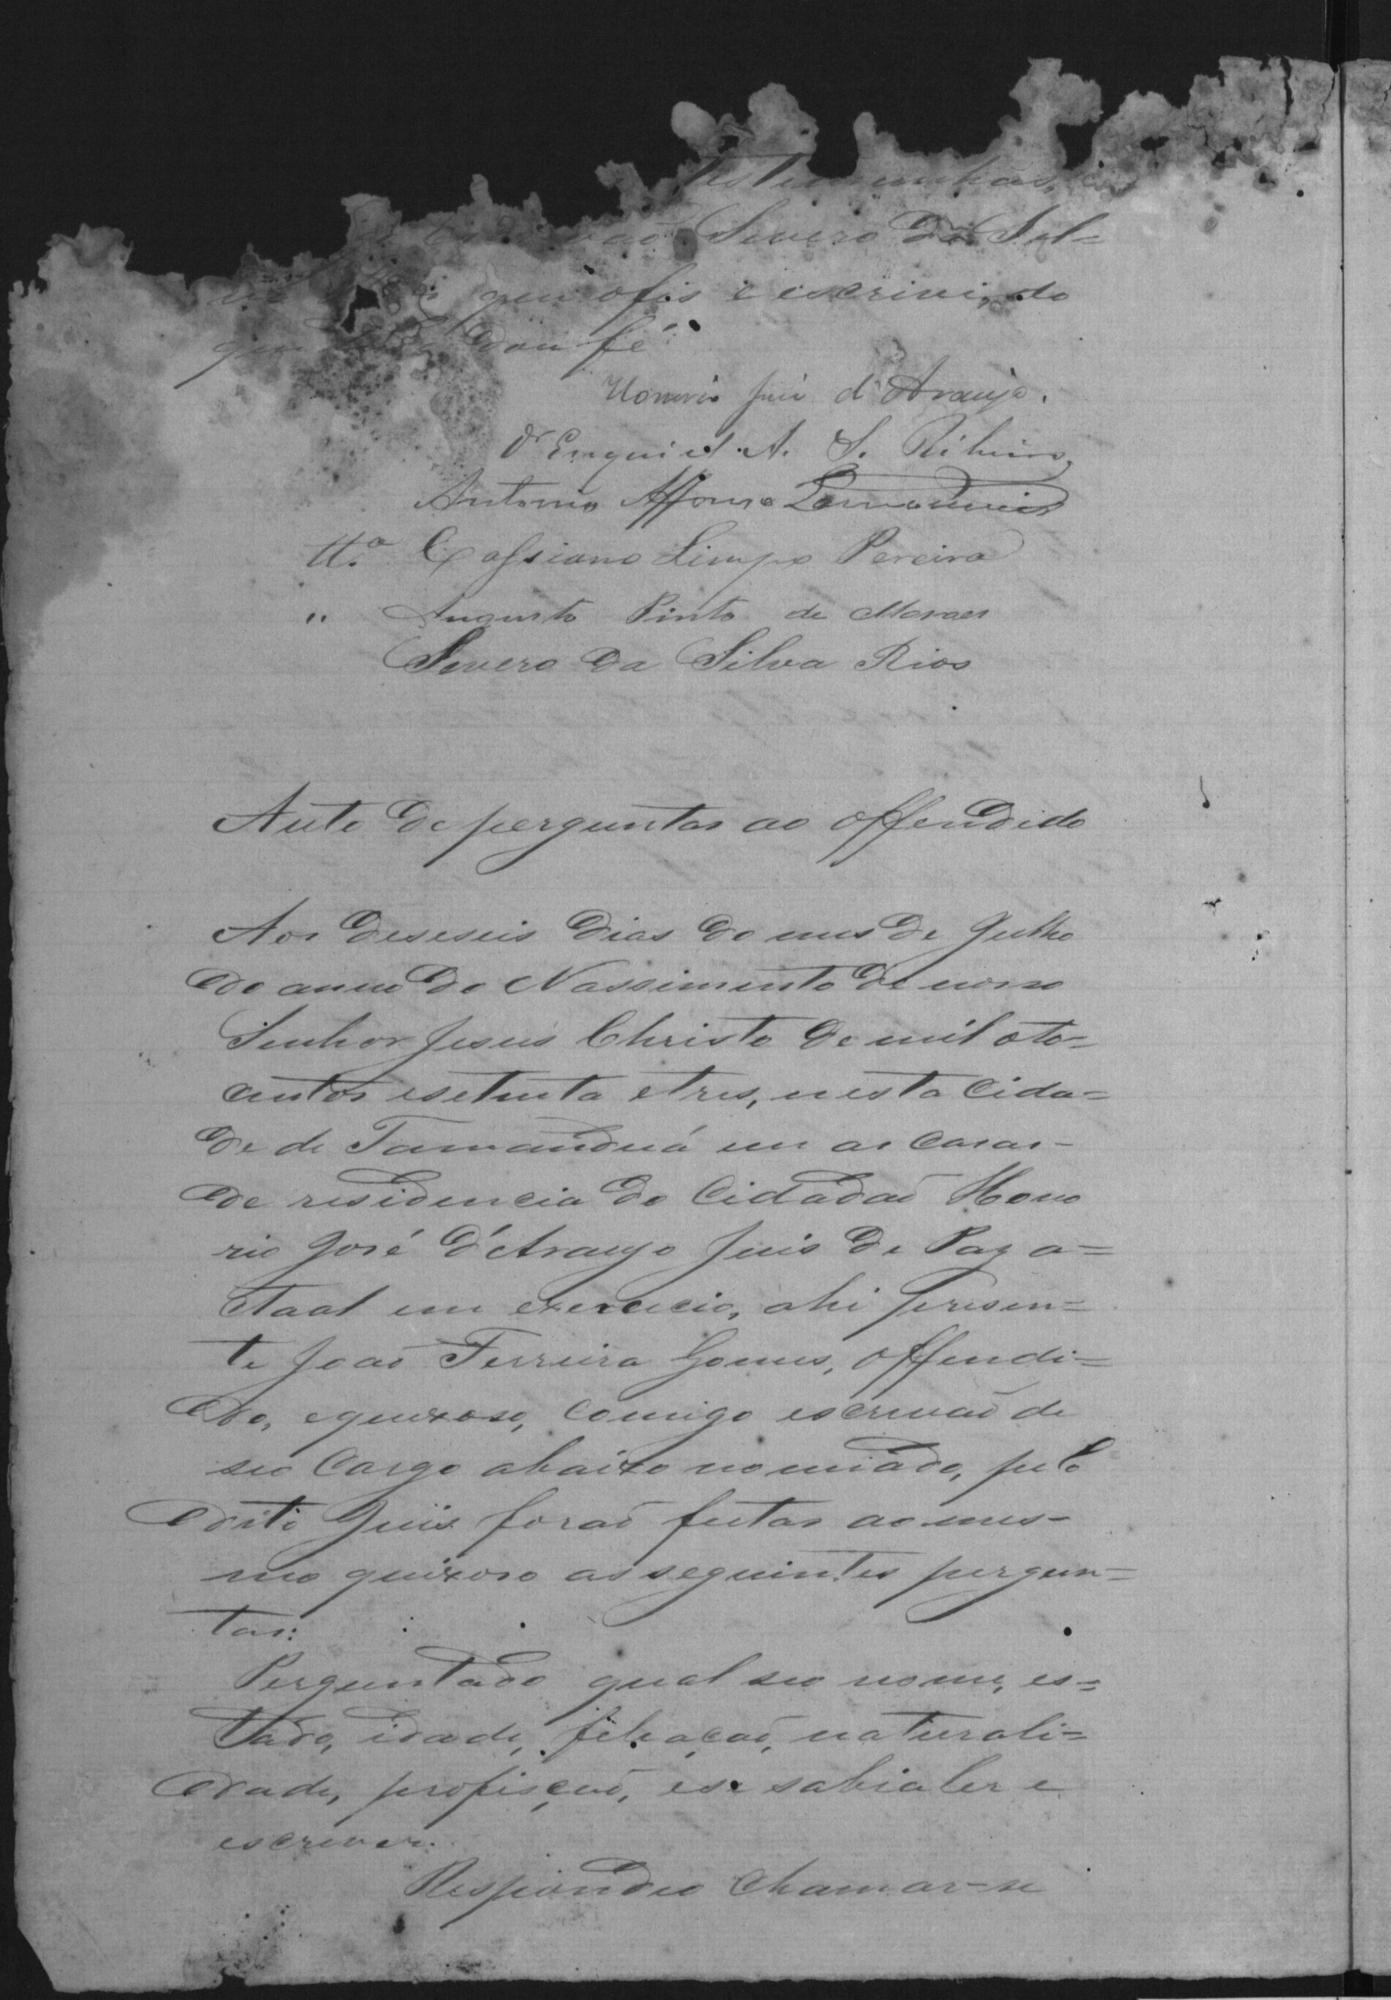 testemunhas, e
Escrivaõ Severo da Sil=
va que o fis e escrivi, do
que dou fé.
Honorio José d'Araujo.
Dr Ezequiel A. S. Ribeiro,
Antonio Affonso Lamounier
Tt.a Cassiano Limpo Pereira
" Augusto Pinto de Moraes
Severo da Silva Rios
Auto de perguntas ao offendido
Aos deseseis dias do mes de Julho
do anno do Nassimento de nosso
Senhor Jesus Christo de mil oto-
centos e setenta e tres, nesta Cida=
de de Tamanduá em as Casas-
de residencia do Cidadaõ Hono
rio José d'Araujo Juis de Paz a=
ctual em exercicio, ahi presen=
te Joaõ Ferreira Gomes, offendi=
do, e queixoso, Comigo escrivaõ de
seo Cargo abaixo nomiado, pelo
dito Juis foraõ feitas ao mes-
mo queixoso as seguintes pergun=
tas:
Perguntado qual seo nome, es=
tado, idade, filiaçaõ, naturali=
dade, profisçaõ, e se sabia ler e
escrever.
Respondeo Chamar-se